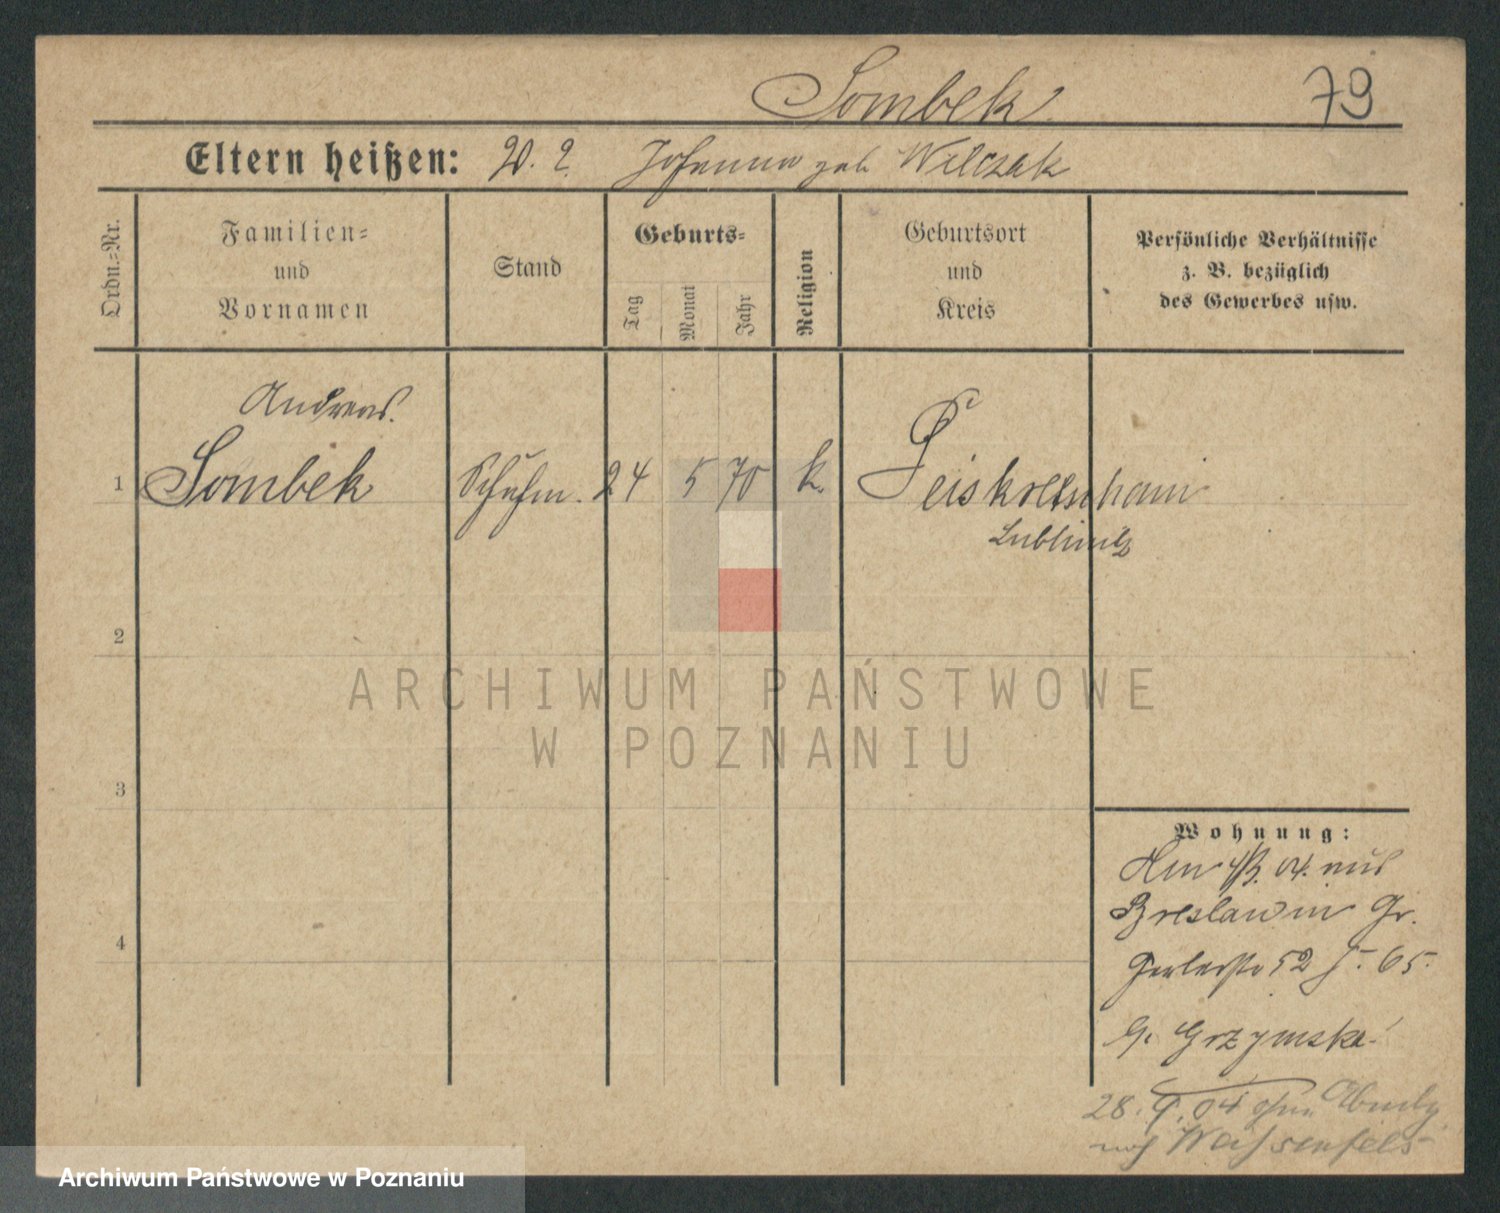 Sombek 79
Eltern heißen: V. ? Johanna geb Wilczak
Ordn.=Nr.
Familien=
und
Vornamen
Stand
Geburts=
Tag
Monat
Jahr
Religion
Geburtsort
und
Kreis
Persönliche Verhältnisse
z. B. bezüglich
des Gewerbes usw.
Andreas.
1 Sombek Schuhm. 24 5 70 k. Peiskretscham
Lublinitz
2
ARCHIWUM PAŃSTWOWE
W POZNANIU
3
Wohnung:
04. aus
Breslau in Gr.
Gerberstr 52
4
Grzymska
28. 9. 04 ohne Abmldg
nach Weissenfels
Archiwum Państwowe w Poznaniu